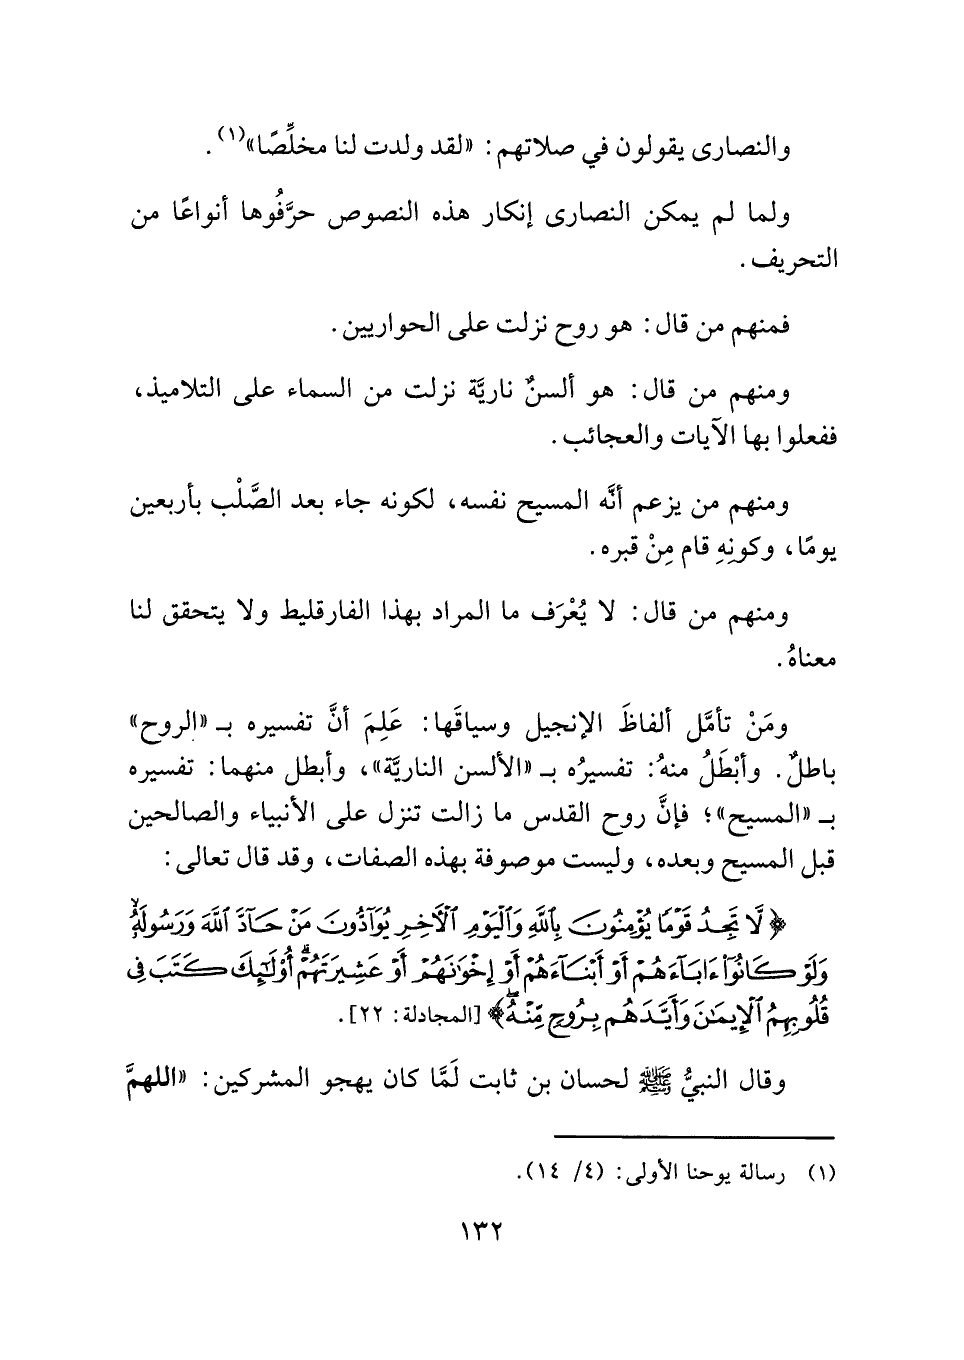 والنصارى يقولون في صلاتهم: «لقد ولدت لنا مخلِّصًا»(١).
ولما لم يمكن النصارى إنكار هذه النصوص حرَّفُوها أنواعًا من
التحريف.
فمنهم من قال: هو روح نزلت على الحواريين.
ومنهم من قال: هو ألسنٌ ناريَّة نزلت من السماء على التلاميذ،
ففعلوا بها الآيات والعجائب.
ومنهم من يزعم أنَّه المسيح نفسه، لكونه جاء بعد الصَّلْب بأربعين
يومًا، وكونِهِ قام مِنْ قبره.
ومنهم من قال: لا يُعْرَف ما المراد بهذا الفارقليط ولا يتحقق لنا
معناهُ.
ومَنْ تأمَّل ألفاظَ الإنجيل وسياقَها: عَلِمَ أنَّ تفسيره بـ «الروح»
باطلٌ. وأبْطَلُ منهُ: تفسيرُه بـ «الألسن الناريَّة»، وأبطل منهما: تفسيره
بـ «المسيح»؛ فإنَّ روح القدس ما زالت تنزل على الأنبياء والصالحين
قبل المسيح وبعده، وليست موصوفة بهذه الصفات، وقد قال تعالى:
﴿لَّا تَجِدُ قَوْمًا يُؤْمِنُونَ بِٱللَّهِ وَٱلْيَوْمِ ٱلْآخِرِ يُوَآدُّونَ مَنْ حَآدَّ ٱللَّهَ وَرَسُولَهُۥ
وَلَوْ كَانُوٓا۟ ءَابَآءَهُمْ أَوْ أَبْنَآءَهُمْ أَوْ إِخْوَٰنَهُمْ أَوْ عَشِيرَتَهُمْ ۚ أُو۟لَٰٓئِكَ كَتَبَ فِى
قُلُوبِهِمُ ٱلْإِيمَٰنَ وَأَيَّدَهُم بِرُوحٍ مِّنْهُ ۖ﴾ [المجادلة: ٢٢].
وقال النبيُّ ﷺ لحسان بن ثابت لَمَّا كان يهجو المشركين: «اللهمَّ
(١) رسالة يوحنا الأولى: (٤/ ١٤).
١٣٢